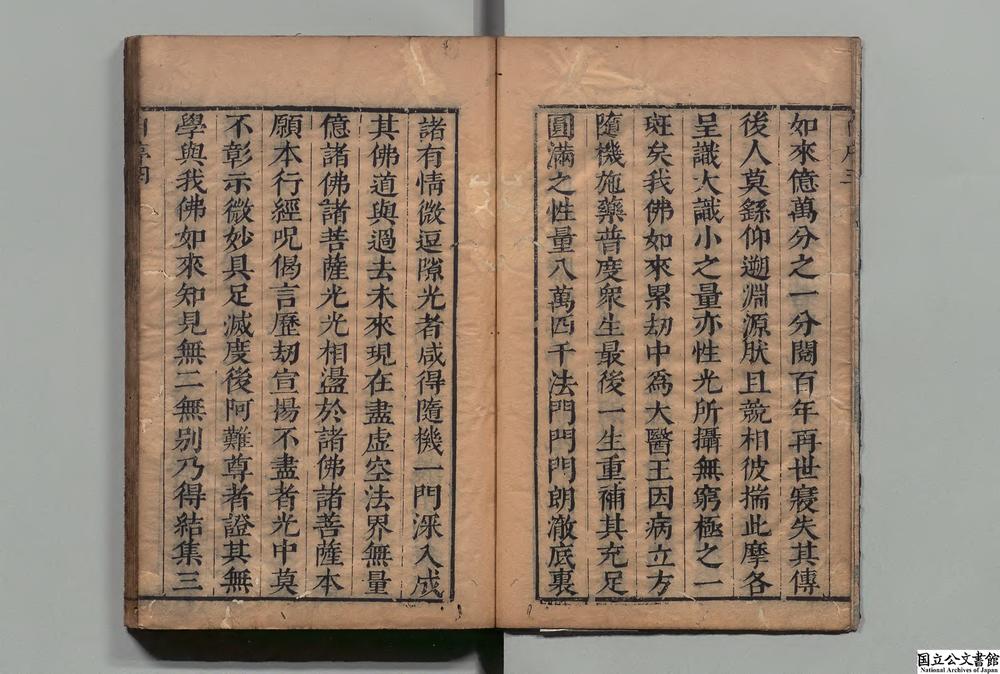 如來億萬分之一分閱百年再世寢失其傳
後人莫繇仰遡淵源肰且競相彼揣此摩各
呈識大識小之量亦性光所攝無窮極之一
斑矣我佛如來累劫中爲大醫王因病立方
隨機施藥普度衆生最後一生重補其充足
圓滿之性量八萬四千法門門門朗澈底裏
諸有情微逗隙光者咸得隨機一門深入成
其佛道與過去未來現在盡虛空法界無量
億諸佛諸菩薩光光相盪於諸佛諸菩薩本
願本行經呪偈言歷劫宣揚不盡者光中莫
不彰示微妙具足滅度後阿難尊者證其無
學與我佛如來知見無二無別乃得結集三
国立公文書館
National Archives of Japan